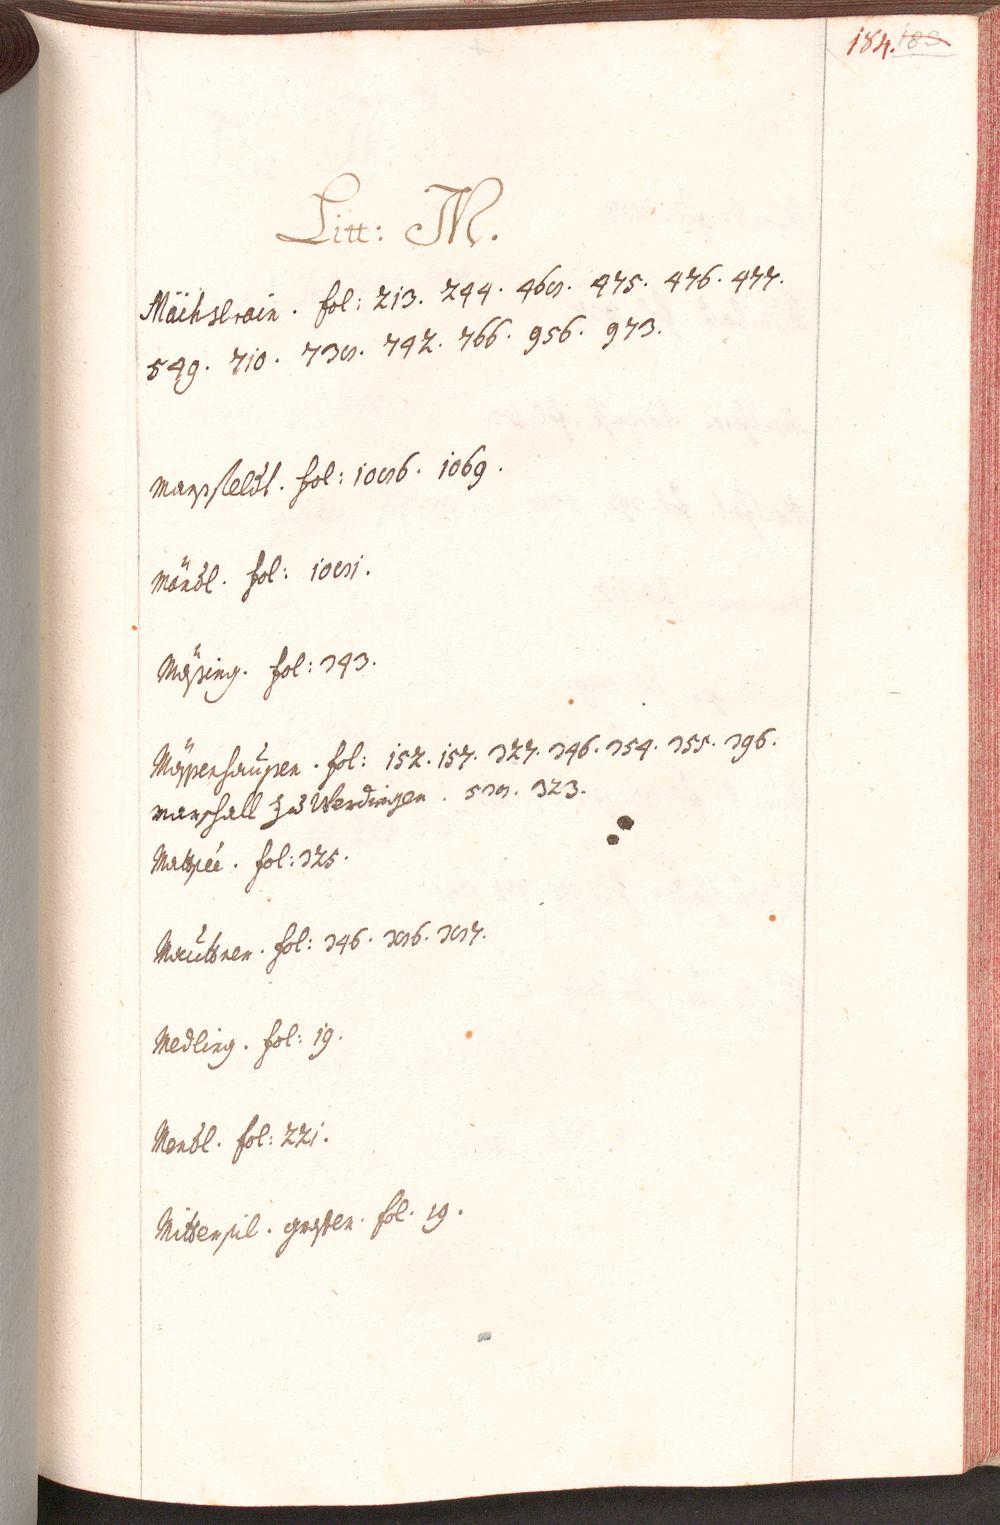 184. 183
Litt: M.
Mächslrain. fol: 213. 244. 468. 475. 476. 477.
549. 710. 738. 742. 766. 956. 973.
fol: 1086. 1069.
Mändl. fol: 1081.
Mäsing. fol: 343.
Mässenhausen. fol: 152. 157. 327. 346. 354. 355. 396.
Marschall zu Werdingen. 538. 323.
Matsee. fol: 325.
Mautner. fol: 346. 386. 387.
Medling. fol: 19.
Mendl. fol: 221.
Mittersil. graffen. fol. 19.